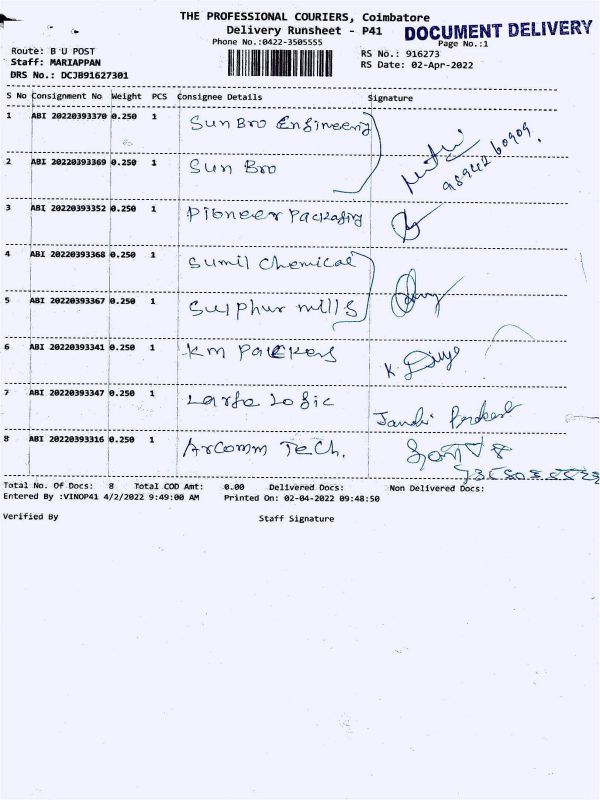 THE PROFESSIONAL COURIERS, Coimbatore
Delivery Runsheet - P41
DOCUMENT DELIVERY
Phone No.:0422-3505555
Page No.:1
Route: B U POST
RS No.: 916273
Staff: MARIAPPAN
RS Date: 02-Apr-2022
DRS No.: DCJB91627301
S No Consignment No Weight PCS Consignee Details Signature
1 ABI 20220393370 0.250 1 Sun Bro Engineerig
2 ABI 20220393369 0.250 1 Sun Bro
3 ABI 20220393352 0.250 1 Pioneer Packaging
4 ABI 20220393368 0.250 1 Sumil Chemical
5 ABI 20220393367 0.250 1 Sulphur mills
6 ABI 20220393341 0.250 1 Km Packers K.
7 ABI 20220393347 0.250 1 Logic
8 ABI 20220393316 0.250 1 ArComm Tech.
Total No. Of Docs: 8 Total COD Amt: 0.00 Delivered Docs: Non Delivered Docs:
Entered By :VINOP41 4/2/2022 9:49:00 AM Printed On: 02-04-2022 09:48:50
Verified By Staff Signature